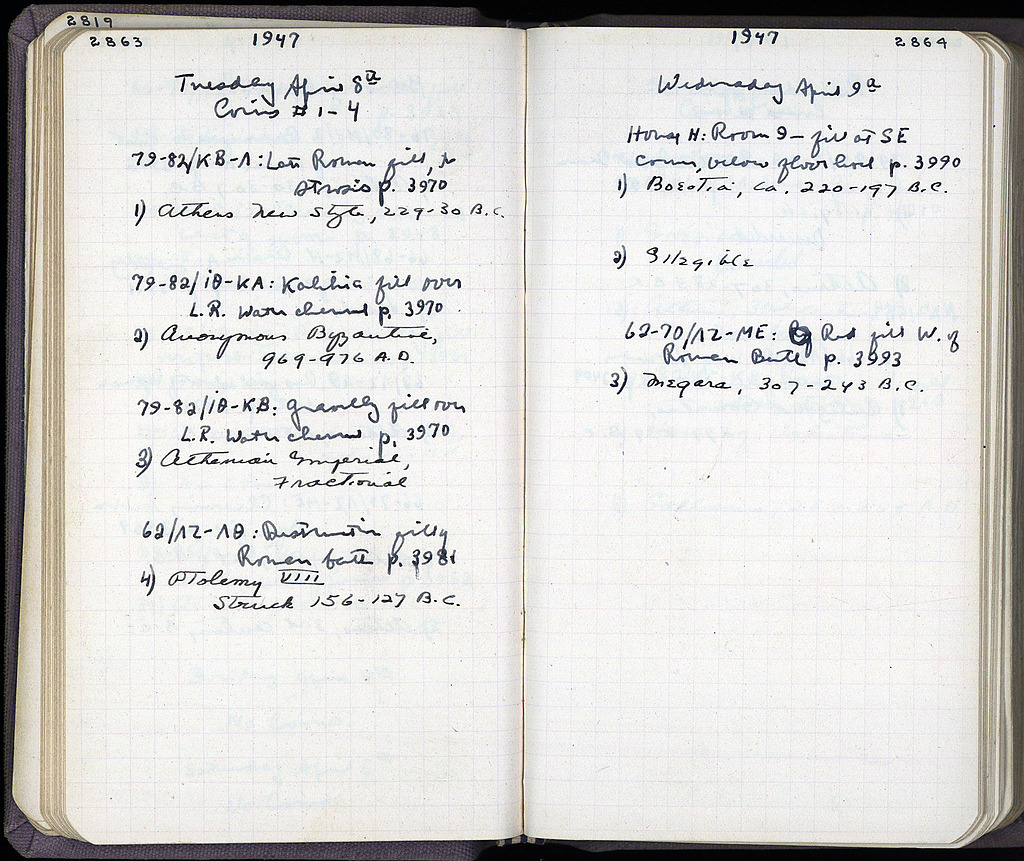 2819
2863
1947
Tuesday April 8th
Coins #1-4
79-82/KB-Λ: Late Roman fill, to
strosis p. 3970
1) Athens New Style, 229-30 B.C.
79-82/ΙΘ-ΚΑ: Kalibia fill over
L.R. Water channel p. 3970
2) Anonymous Byzantine,
969-976 A.D.
79-82/ΙΘ-ΚΒ: Gravelly fill over
L.R. Water channel p. 3970
3) Athenian Imperial,
Fractional
62/ΛΖ-ΛΘ: Destruction fill of
Roman bath p. 3981
4) Ptolemy VIII
Struck 156-127 B.C.
1947
2864
Wednesday April 9th
House H: Room 9 - fill at SE
corner, below floor level p. 3990
1) Boeotia, ca. 220-197 B.C.
2) Illegible
62-70/ΛΖ-ΜΕ: Red fill W. of
Roman Bath p. 3993
3) Megara, 307-243 B.C.